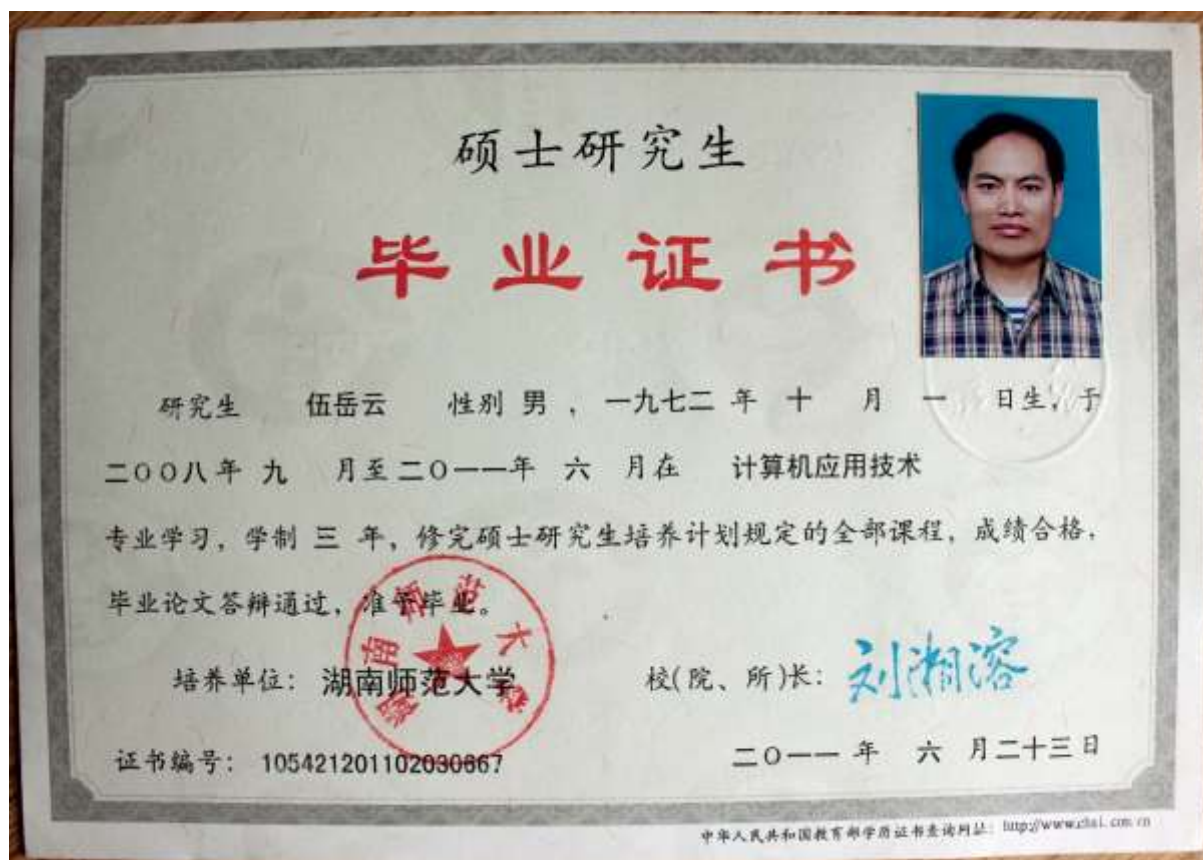 硕士研究生
毕业证书
研究生 伍岳云 性别 男 ，一九七二 年 十 月 一 日生，于
二〇〇八年 九 月至二〇一一年 六 月在 计算机应用技术
专业学习，学制 三 年，修完硕士研究生培养计划规定的全部课程，成绩合格，
毕业论文答辩通过，准予毕业。
湖南师范大学
培养单位：湖南师范大学 校(院、所)长：刘湘溶
证书编号：105421201102030867 二〇一一 年 六 月二十三日
中华人民共和国教育部学历证书查询网址：http://www.chsi.com.cn